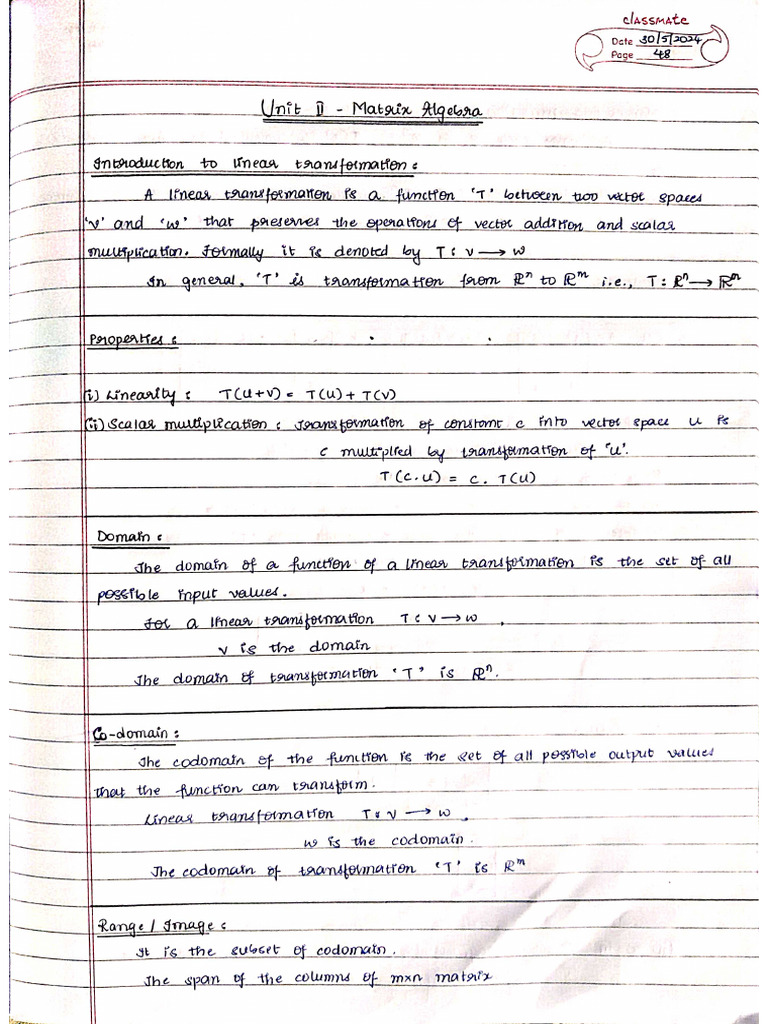 classmate
Date 30/5/2024
Page 48
Unit II - Matrix Algebra
Introduction to linear transformation :
A linear transformation is a function 'T' between two vector spaces
'v' and 'w' that preserves the operations of vector addition and scalar
multiplication. Formally it is denoted by T : v → w
In general, 'T' is transformation from ℝⁿ to ℝᵐ i.e., T : ℝⁿ → ℝᵐ
Properties :
(i) Linearity : T(u+v) = T(u) + T(v)
(ii) Scalar multiplication : Transformation of constant c into vector space u is
c multiplied by transformation of 'u'.
T(c.u) = c. T(u)
Domain :
The domain of a function of a linear transformation is the set of all
possible input values.
For a linear transformation T : v → w ,
v is the domain
The domain of transformation 'T' is ℝⁿ.
Co-domain :
The codomain of the function is the set of all possible output values
that the function can transform.
Linear transformation T : v → w ,
w is the codomain.
The codomain of transformation 'T' is ℝᵐ
Range / Image :
It is the subset of codomain.
The span of the columns of mxn matrix